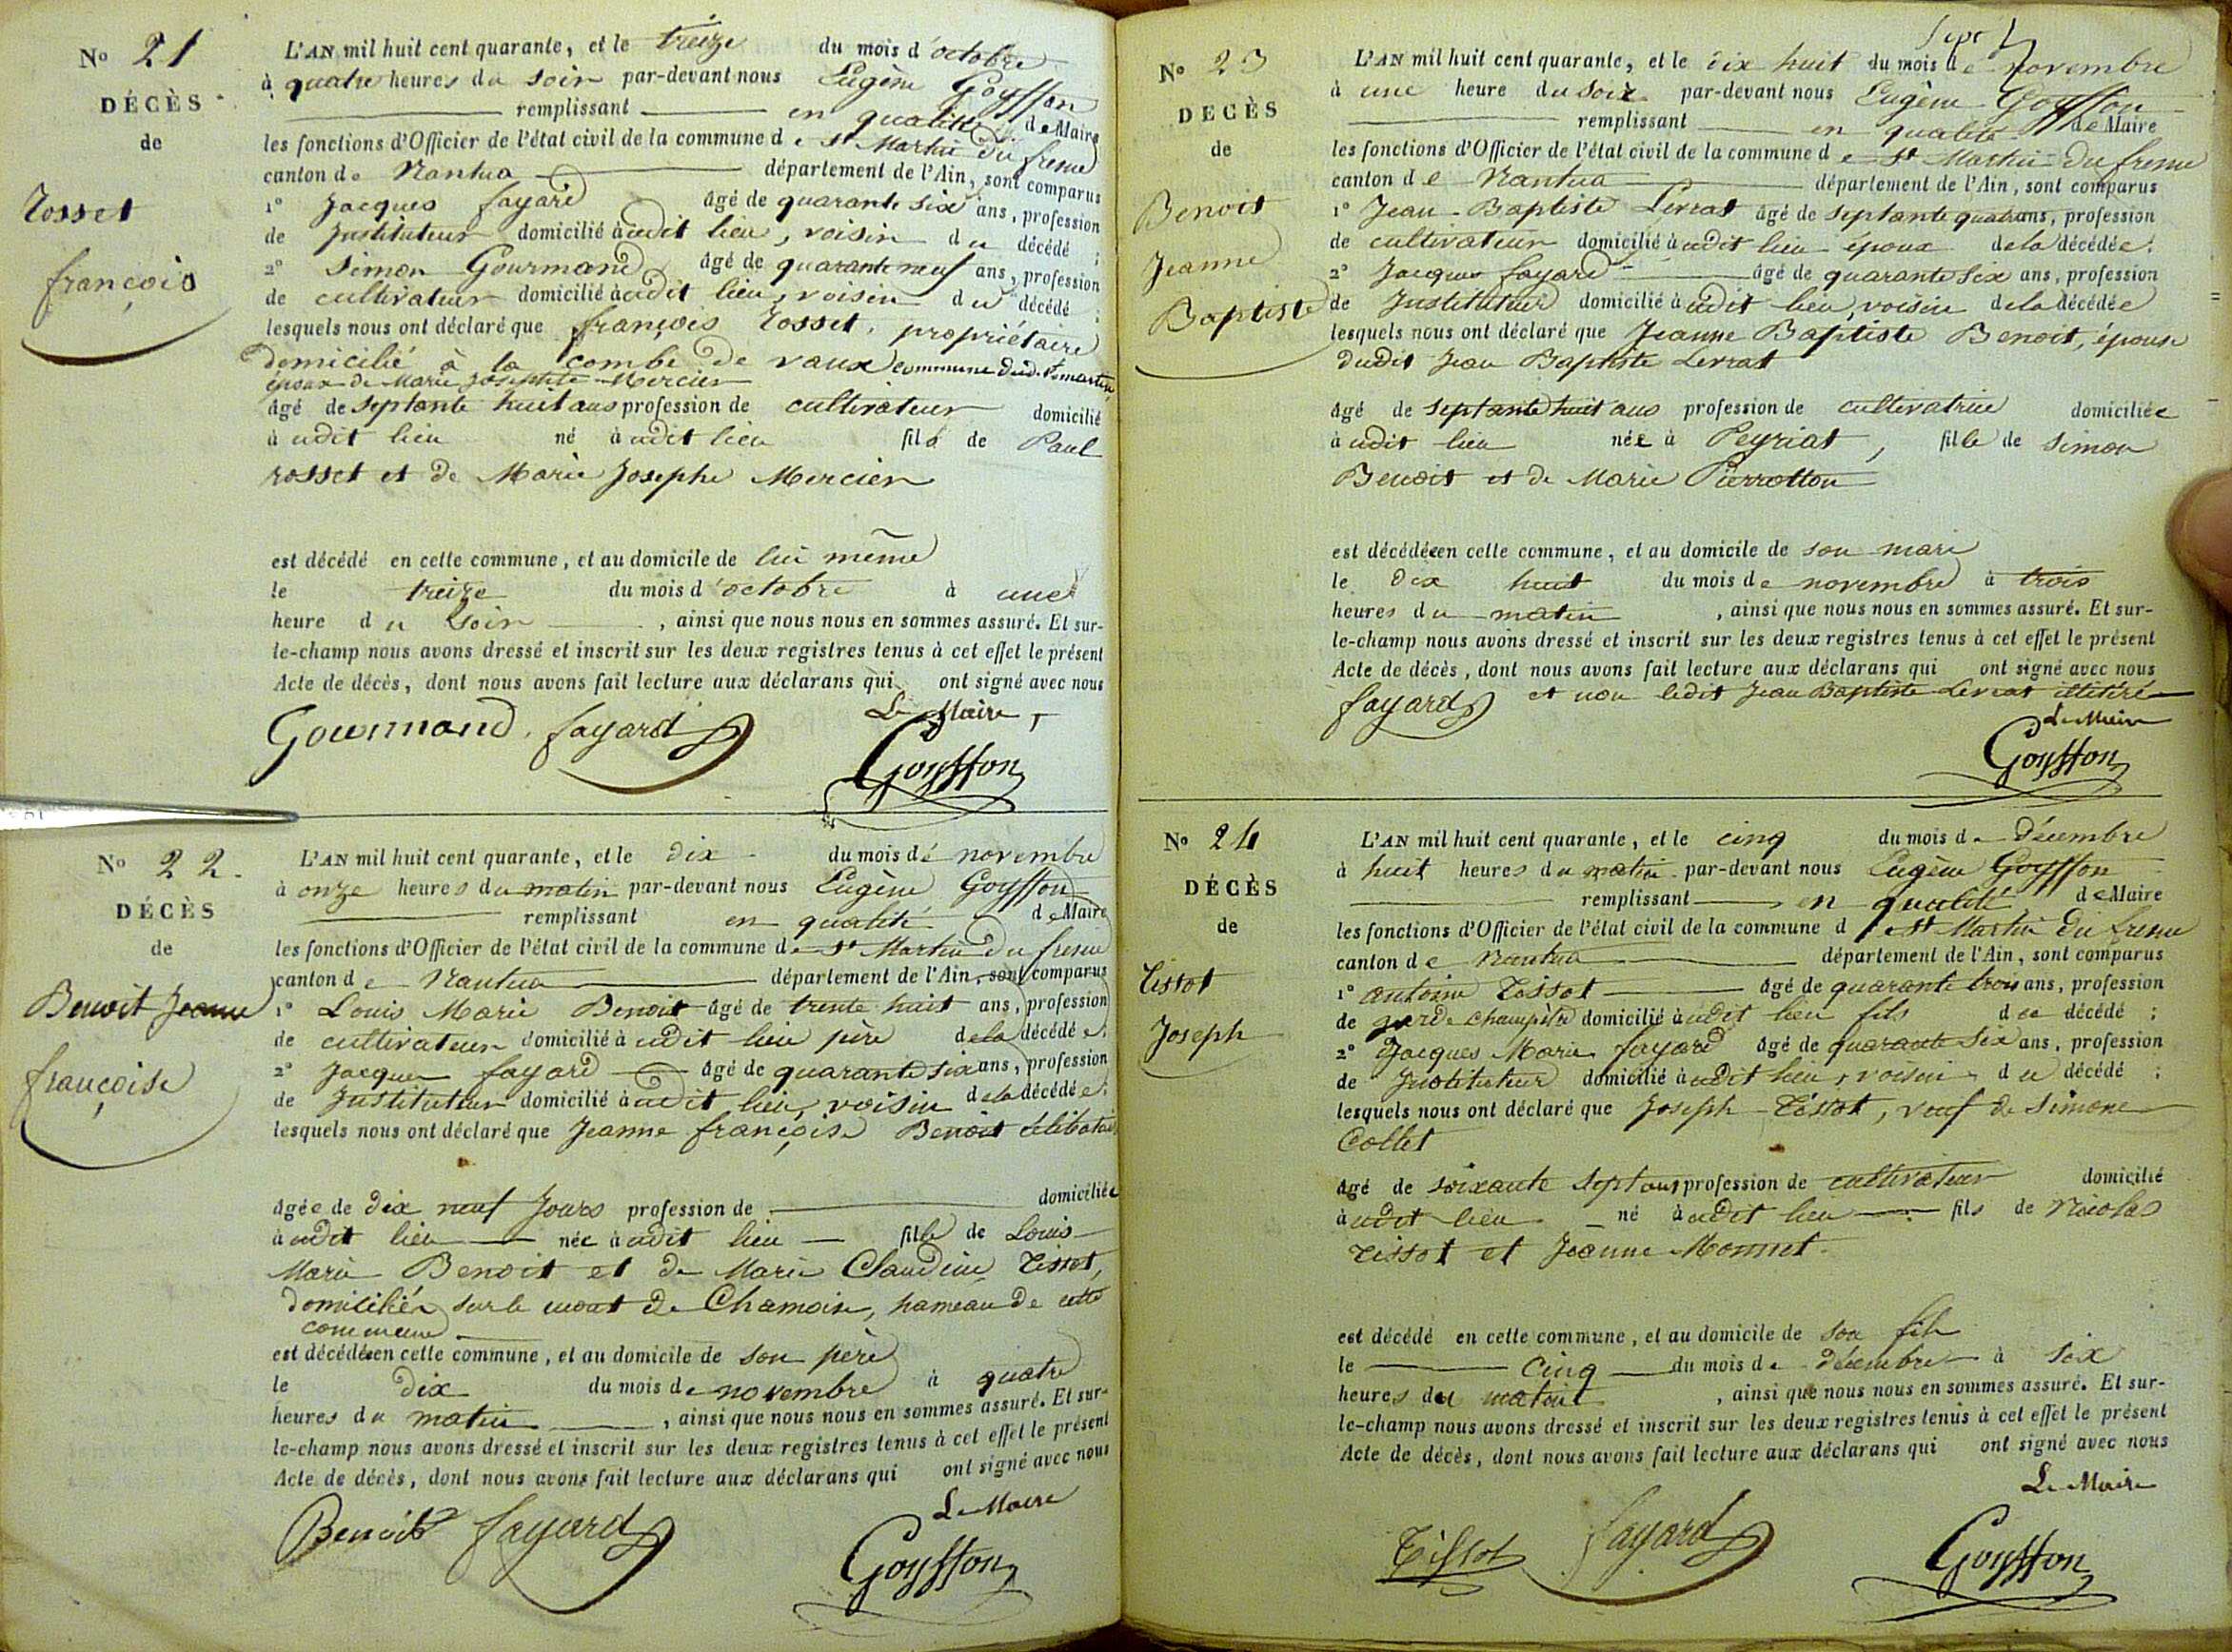 N° 21
DÉCÈS
de
Rosset
françois
L'AN mil huit cent quarante, et le treize du mois d'octobre
à quatre heures du soir par-devant nous Eugène Goyffon
remplissant en qualité de Maire
les fonctions d'Officier de l'état civil de la commune de St Martin du fresne
canton de Nantua département de l'Ain, sont comparus
1° Jacques fayard âgé de quarante six ans, profession
de Instituteur domicilié à audit lieu, voisin du décédé ;
2° Simon Gourmand âgé de quarante neuf ans, profession
de cultivateur domicilié à audit lieu, voisin du décédé ;
lesquels nous ont déclaré que françois Rosset, propriétaire
domicilié à la combe de vaux commune dud. St martin
époux de Marie Josephte Mercier
âgé de septante huit ans profession de cultivateur domicilié
à audit lieu né à audit lieu fils de Paul
rosset et de Marie Josephe Mercier
est décédé en cette commune, et au domicile de lui même
le treize du mois d'octobre à une
heure du soir , ainsi que nous nous en sommes assuré. Et sur-
le-champ nous avons dressé et inscrit sur les deux registres tenus à cet effet le présent
Acte de décès, dont nous avons fait lecture aux déclarans qui ont signé avec nous
Le Maire,
Gourmand. fayard
Goyffon
N° 22.
DÉCÈS
de
Benoit Jeanne
françoise
L'AN mil huit cent quarante, et le dix du mois de novembre
à onze heures du matin par-devant nous Eugène Goyffon
remplissant en qualité de Maire
les fonctions d'Officier de l'état civil de la commune de St Martin du fresne
canton de Nantua département de l'Ain, sont comparus
1° Louis Marie Benoit âgé de trente huit ans, profession
de cultivateur domicilié à audit lieu père de la décédée ;
2° Jacques fayard âgé de quarante six ans, profession
de Instituteur domicilié à audit lieu, voisin de la décédée ;
lesquels nous ont déclaré que Jeanne françoise Benoit célibataire
âgée de dix neuf jours profession de domiciliée
à audit lieu née à audit lieu fille de Louis
Marie Benoit et de Marie Claudine Tissot,
domiciliés sur le mont de Chamoise, hameau de cette
commune
est décédée en cette commune, et au domicile de son père
le dix du mois de novembre à quatre
heures du matin , ainsi que nous nous en sommes assuré. Et sur-
le-champ nous avons dressé et inscrit sur les deux registres tenus à cet effet le présent
Acte de décès, dont nous avons fait lecture aux déclarans qui ont signé avec nous
Le Maire
Benoit fayard
Goyffon
N° 23
DÉCÈS
de
Benoit
Jeanne
Baptiste
L'AN mil huit cent quarante, et le dix huit du mois de novembre
à une heure du soir par-devant nous Eugène Goyffon
remplissant en qualité de Maire
les fonctions d'Officier de l'état civil de la commune de St Martin du fresne
canton de Nantua département de l'Ain, sont comparus
1° Jean-Baptiste Levrat âgé de septante quatre ans, profession
de cultivateur domicilié à audit lieu époux de la décédée ;
2° Jacques fayard âgé de quarante six ans, profession
de Instituteur domicilié à audit lieu, voisin de la décédée
lesquels nous ont déclaré que Jeanne Baptiste Benoit, épouse
dudit Jean Baptiste Levrat
âgé de septante huit ans profession de cultivatrice domiciliée
à audit lieu née à Peyriat, fille de Simon
Benoit et de Marie Pierrotton
est décédée en cette commune, et au domicile de son mari
le dix huit du mois de novembre à trois
heures du matin , ainsi que nous nous en sommes assuré. Et sur-
le-champ nous avons dressé et inscrit sur les deux registres tenus à cet effet le présent
Acte de décès, dont nous avons fait lecture aux déclarans qui ont signé avec nous
fayard et non ledit Jean Baptiste Levrat illitéré
Le Maire
Goyffon
N° 24
DÉCÈS
de
Tissot
Joseph
L'AN mil huit cent quarante, et le cinq du mois de décembre
à huit heures du matin par-devant nous Eugène Goyffon
remplissant en qualité de Maire
les fonctions d'Officier de l'état civil de la commune de St Martin du fresne
canton de Nantua département de l'Ain, sont comparus
1° antoine Tissot âgé de quarante trois ans, profession
de garde champêtre domicilié à audit lieu fils du décédé ;
2° Jacques Marie fayard âgé de quarante six ans, profession
de Instituteur domicilié à audit lieu, voisin du décédé ;
lesquels nous ont déclaré que Joseph Tissot, veuf de Simone
Collet
âgé de soixante sept ans profession de cultivateur domicilié
à audit lieu né à audit lieu fils de Nicolas
Tissot et Jeanne Monnet
est décédé en cette commune, et au domicile de son fils
le cinq du mois de décembre à six
heures du matin , ainsi que nous nous en sommes assuré. Et sur-
le-champ nous avons dressé et inscrit sur les deux registres tenus à cet effet le présent
Acte de décès, dont nous avons fait lecture aux déclarans qui ont signé avec nous
Le Maire
Tissot fayard
Goyffon